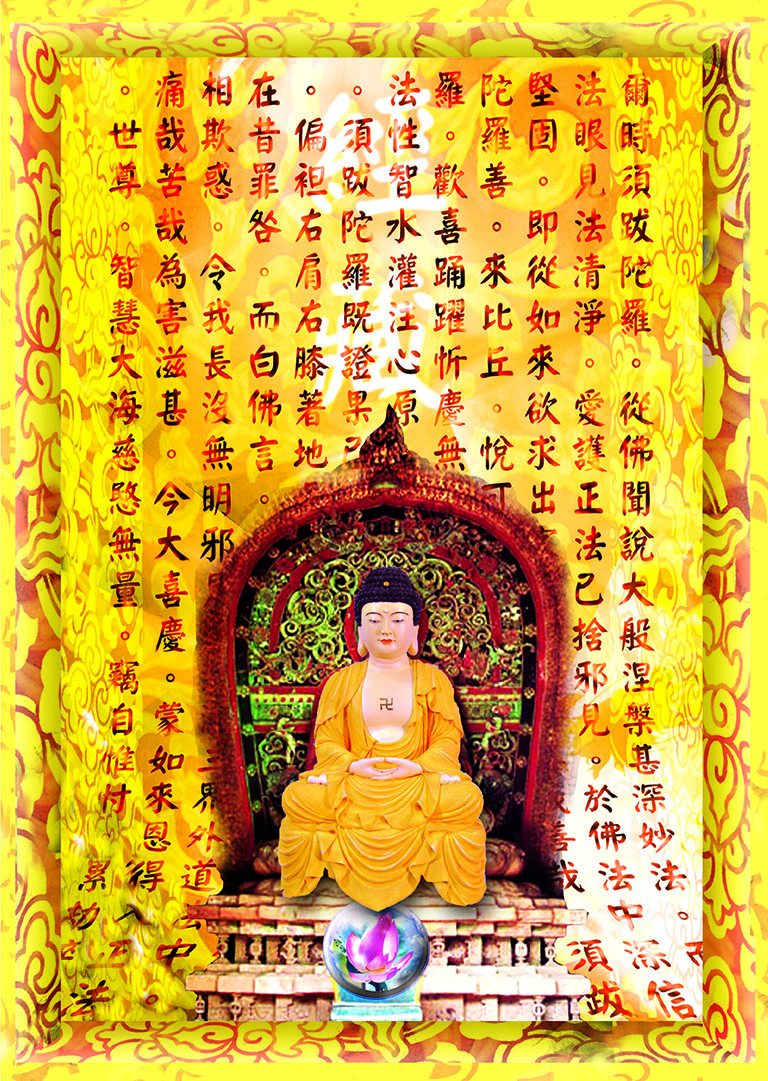 經藏
爾時須跋陀羅。從佛聞說大般涅槃甚深妙法。而
法眼見法清淨。愛護正法已捨邪見。於佛法中深信
堅固。即從如來欲求出 善哉 須跋
陀羅善。來比丘。悅可
羅。歡喜踊躍忻慶無
法性智水灌注心原
。須跋陀羅既證果已
。偏袒右肩右膝著地
在昔罪咎。而白佛言。
相欺惑。令我長沒無明邪 三界外道法中。
痛哉苦哉為害滋甚。今大喜慶。蒙如來恩得入正法
。世尊。智慧大海慈愍無量。竊自惟忖累劫